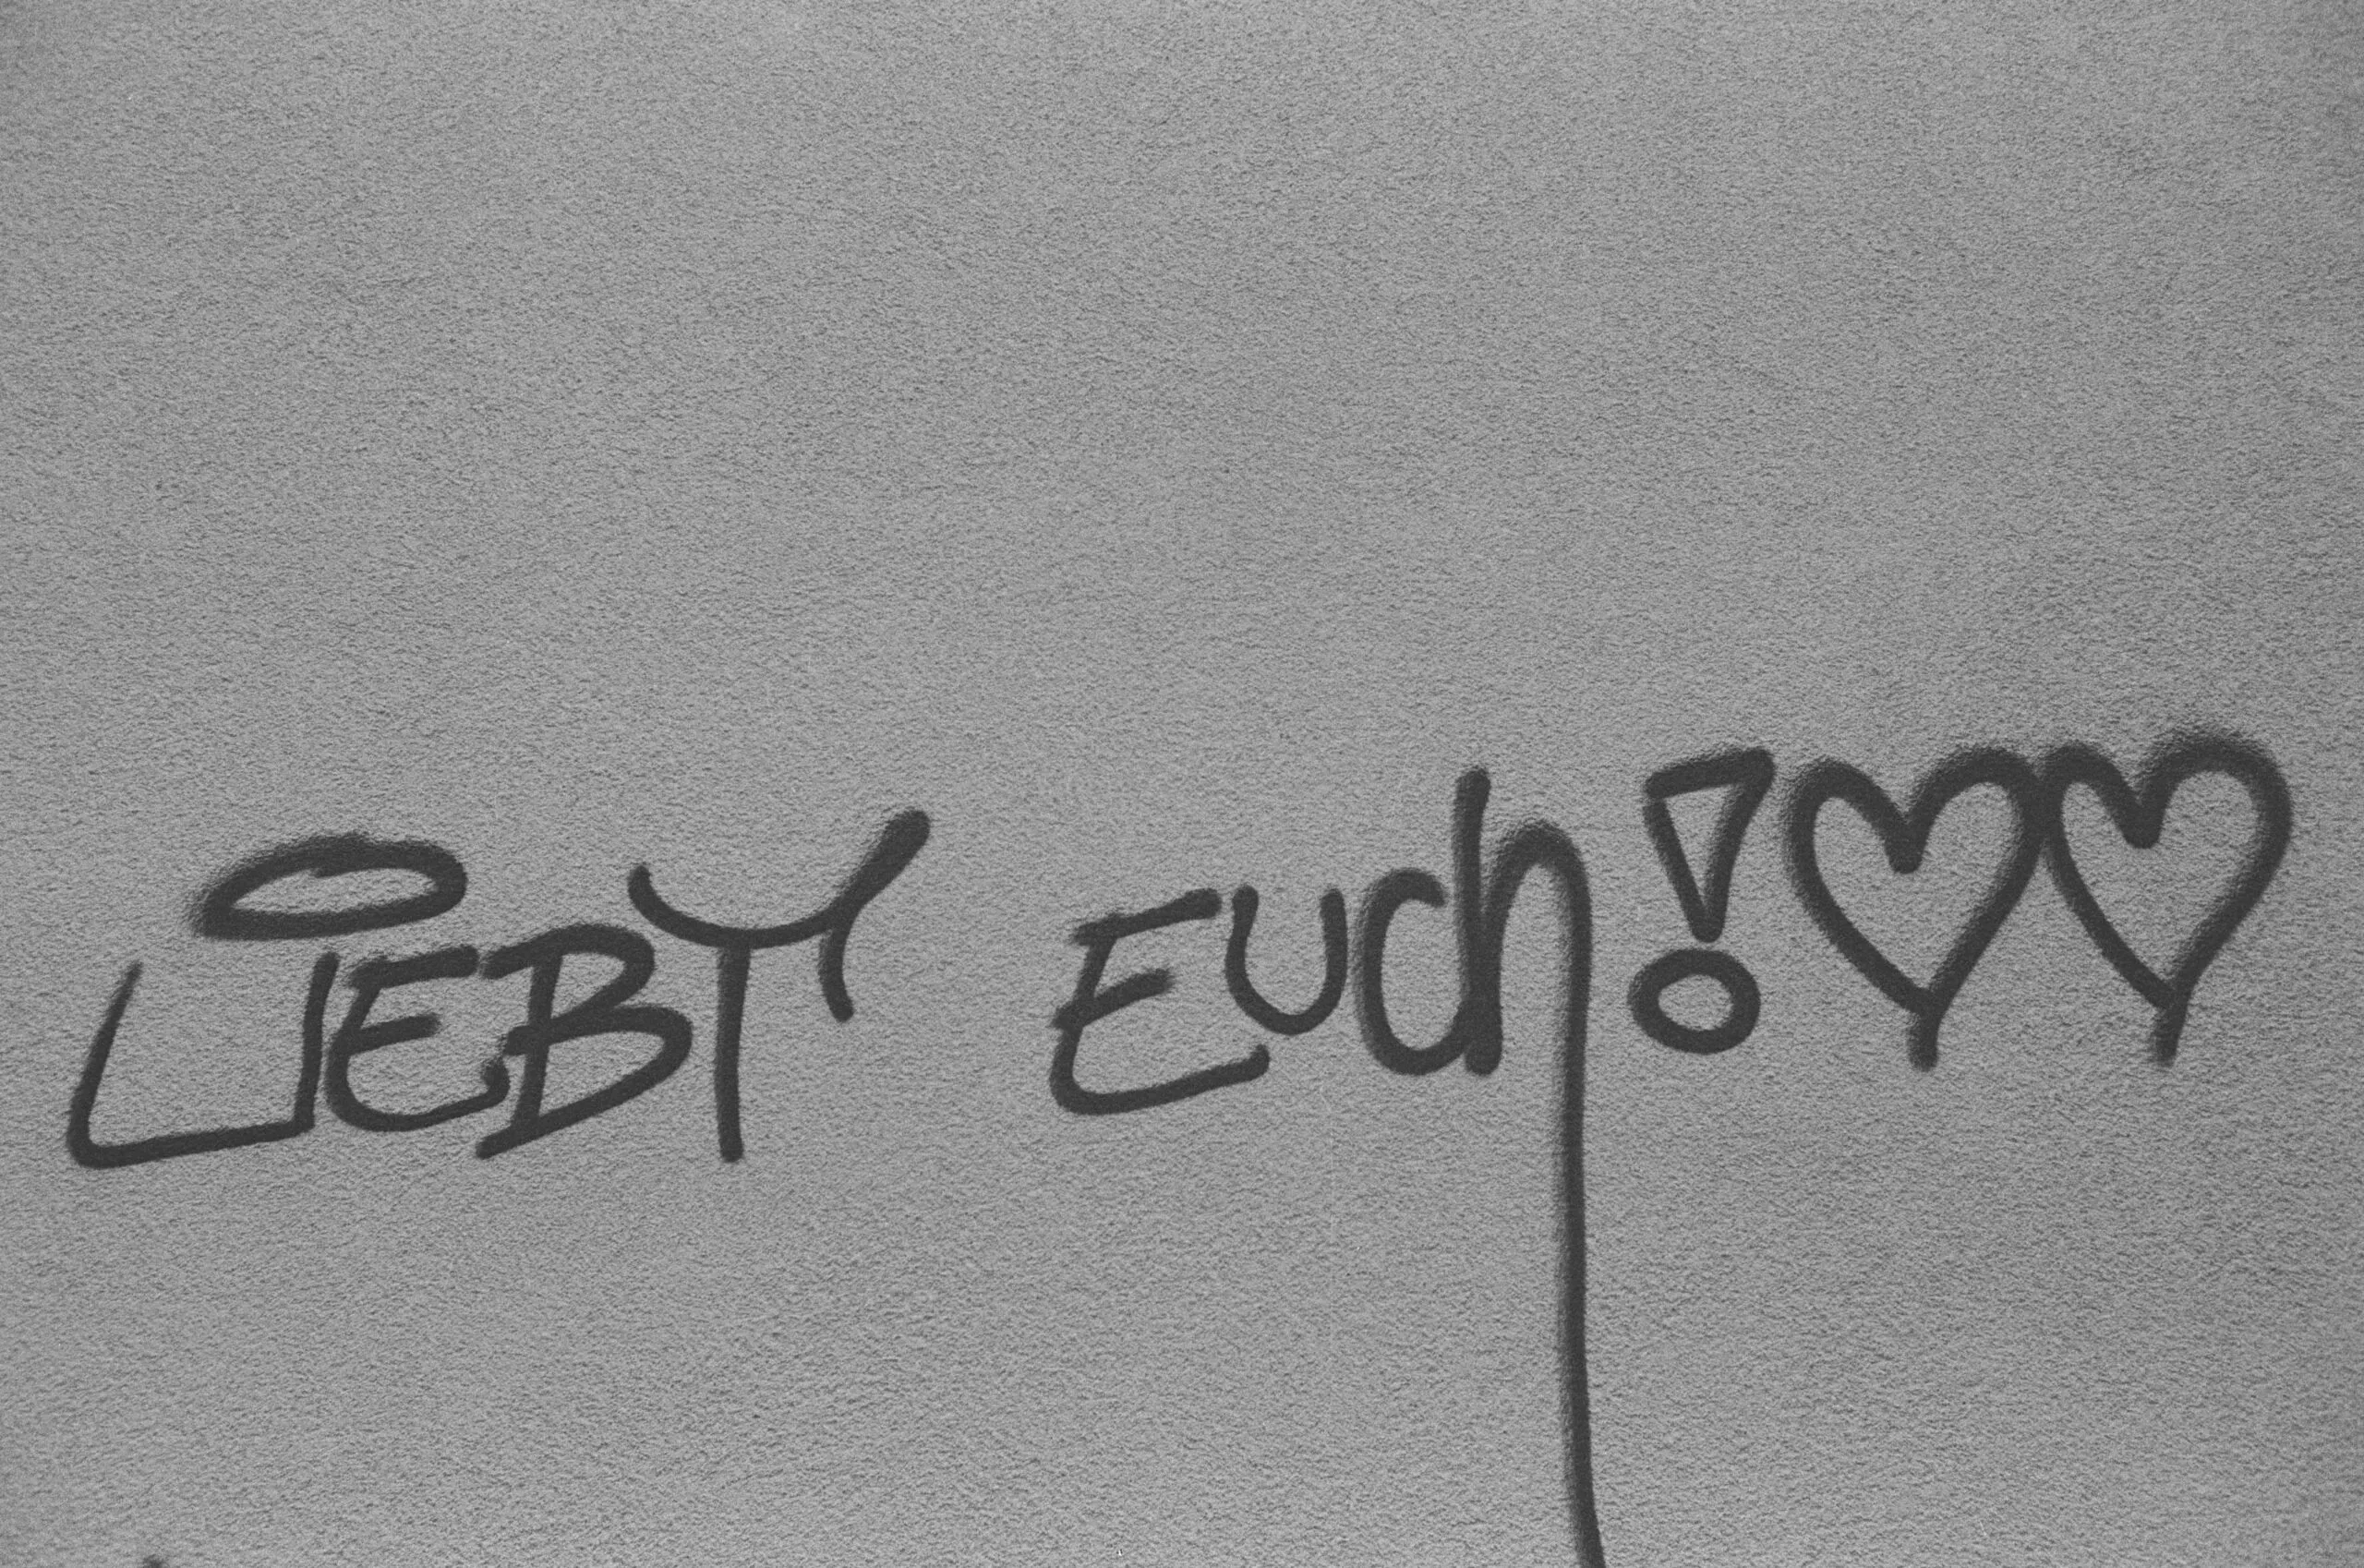 LiEBT EUch!♡♡